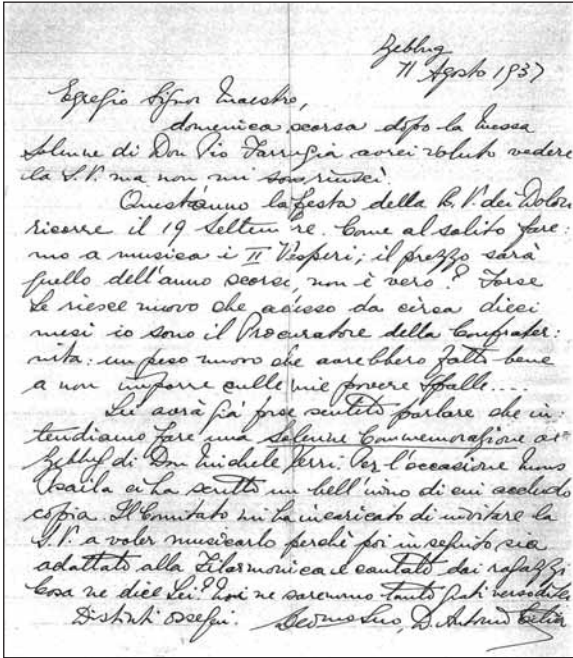 Zebbug
11 Agosto 1937
Egregio Signor Maestro,
domenica scorsa dopo la messa
solenne di Don Pio Farrugia avrei voluto vedere
la S.V. ma non mi son riusci.
Quest'anno la festa della B.V. dei Dolori
ricorre il 19 Settembre. Come al solito fare:
mo a musica i II Vesperi; il prezzo sarà
quello dell'anno scorso, non è vero? Forse
Le riesce nuovo che adesso da circa dieci
mesi io sono il Procuratore della Confrater:
nita: un peso nuovo che avrebbero fatto bene
a non imporre sulle mie povere spalle....
Lei avrà già forse sentito parlare che in:
tendiamo fare una Solenne Commemorazione al
Zebbug di Don Michele Xerri. Per l'occasione Mons
Psaila ci ha scritto un bell'inno di cui accludo
copia. Il Comitato mi ha incaricato di invitare la
S.V. a voler musicarlo perchè poi in seguito sia
adattato alla Filarmonica e cantato dai ragazzi
Cosa ne dice Lei? Noi ne saremmo tanto grati verso di Lei
Distinti ossequi. Devmo Suo, D. Antonio